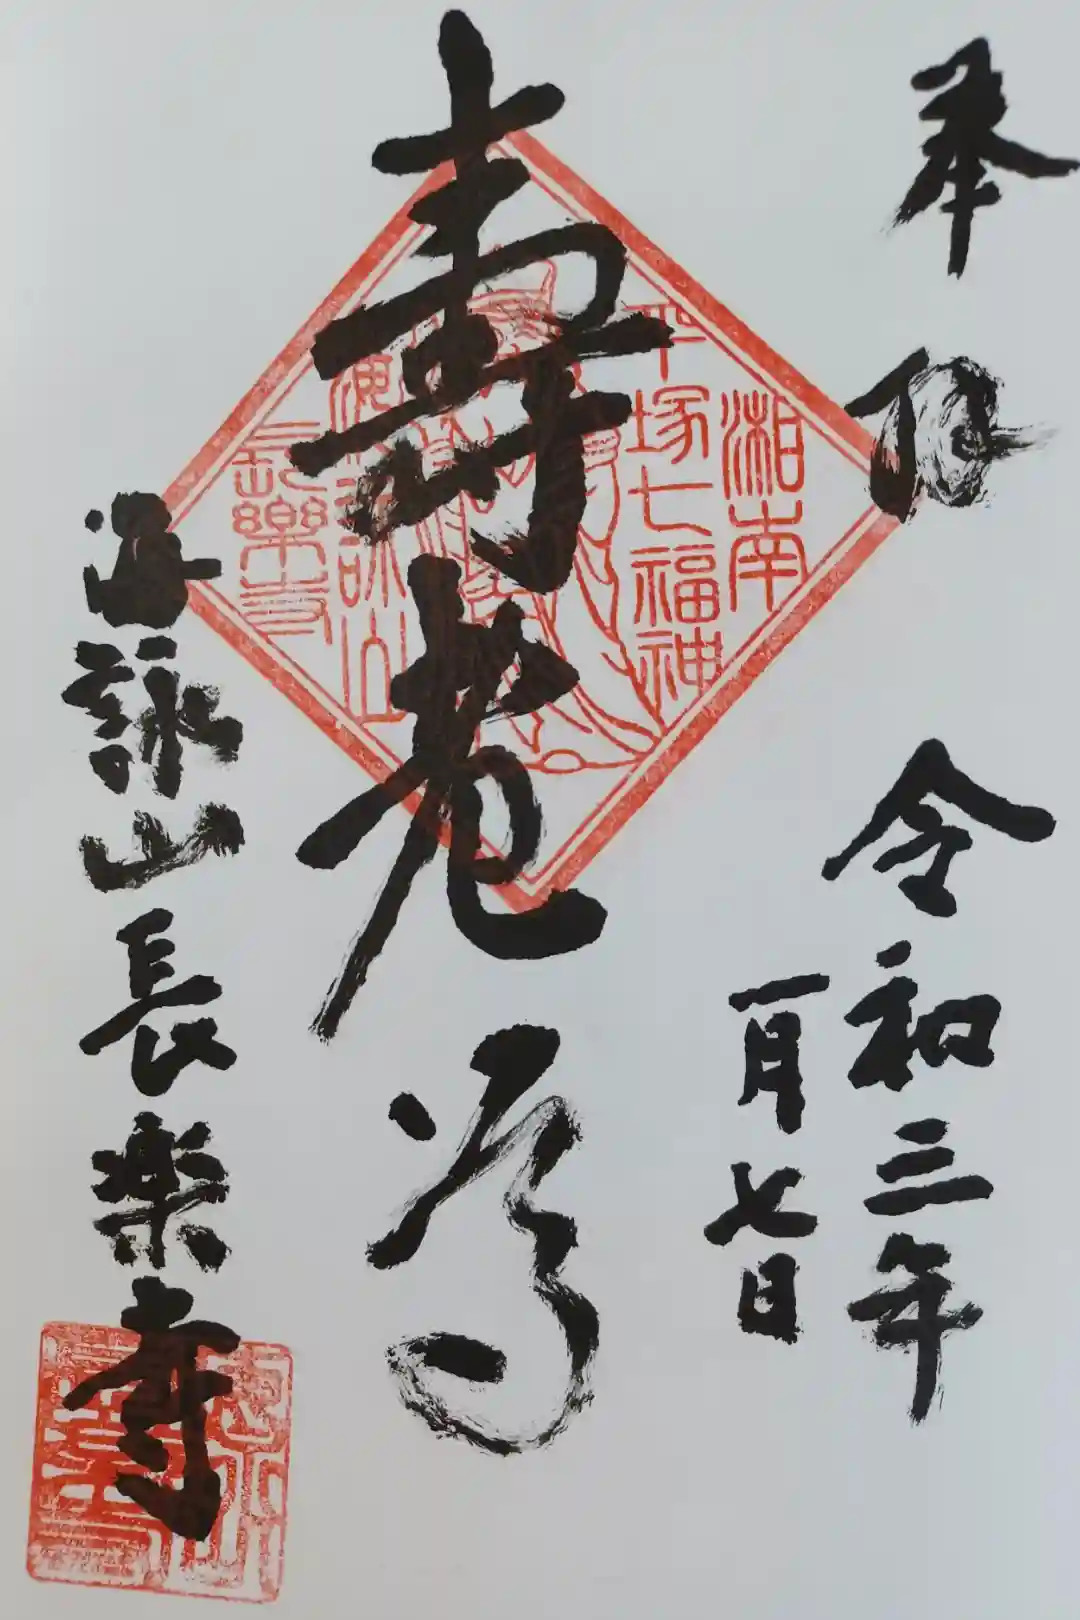 奉拝
令和三年
一月七日
寿老尊
海詠山長楽寺
湘南
平塚七福神
海詠山
長樂寺